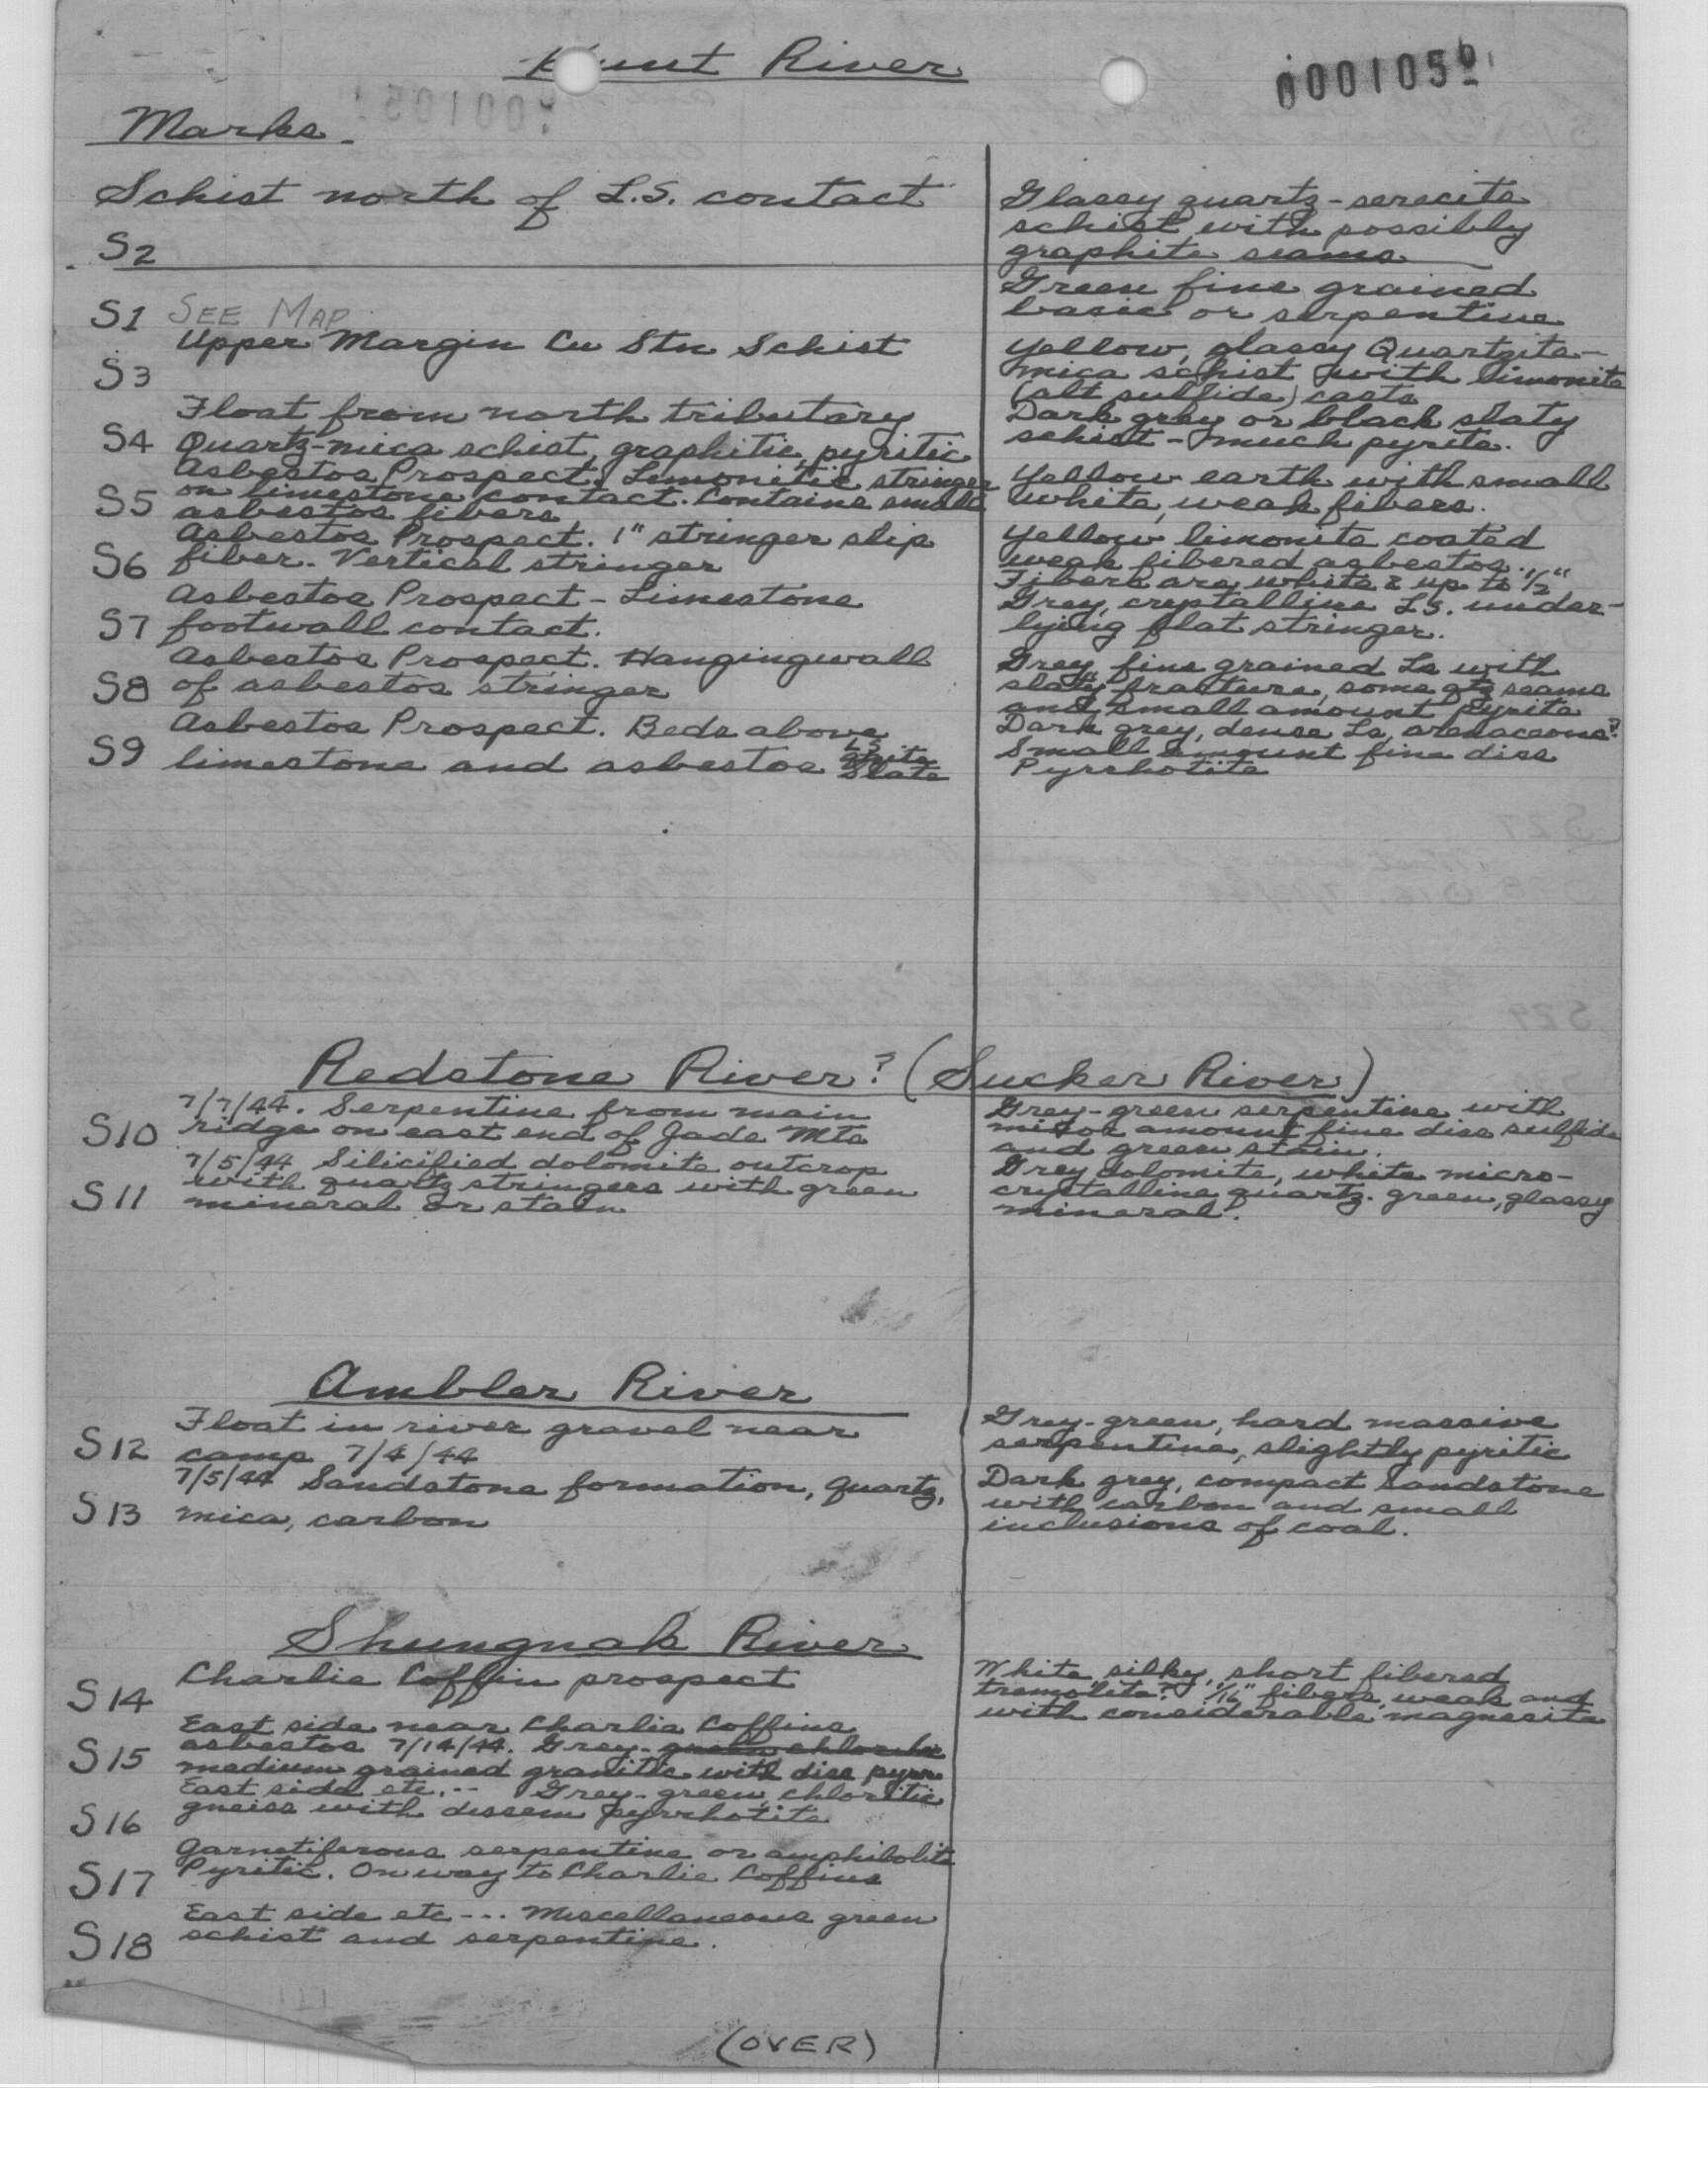 Hunt River
0001050
Marks
Schist north of L.S. contact
S2
Glassy quartz-serecite
schist with possibly
graphite seams
S1 SEE MAP
Green fine grained
basic or serpentine
Upper Margin Cu Stn Schist
S3
Yellow, glassy Quartzite-
mica schist with limonite
(alt sulfide) casts
Float from north tributary
S4 Quartz-mica schist, graphitic, pyritic
Dark grey or black slaty
schist - much pyrite.
Asbestos Prospect. Limonitic stringer
on limestone contact. Contains small
S5 asbestos fibers
Yellow earth with small
white, weak fibers.
Asbestos Prospect. 1" stringer slip
S6 fiber. Vertical stringer
Yellow limonite coated
weak fibered asbestos.
Fibers are white & up to 1/2"
Asbestos Prospect - Limestone
S7 footwall contact.
Grey, crystalline LS. under-
lying flat stringer.
Asbestos Prospect. Hangingwall
S8 of asbestos stringer
Grey, fine grained Ls with
slaty fracture, some qtz seams
and small amount pyrite
Asbestos Prospect. Beds above
S9 limestone and asbestos LS
Slate
Dark grey, dense Ls, arenaceous?
Small amount fine diss
Pyrrhotite
Redstone River? (Sucker River)
7/7/44. Serpentine from main
S10 ridge on east end of Jade Mts
Grey-green serpentine with
minor amount fine diss sulfide
and green stain.
7/5/44 Silicified dolomite outcrop
with quartz stringers with green
S11 mineral or stain
Grey dolomite, white micro-
crystalline quartz. green, glassy
mineral.
Ambler River
Float in river gravel near
S12 camp 7/4/44
Grey-green, hard massive
serpentine, slightly pyritic
7/5/44 Sandstone formation, quartz,
S13 mica, carbon
Dark grey, compact Sandstone
with carbon and small
inclusions of coal.
Shungnak River
S14 Charlie Coffin prospect
White silky, short fibered
tremolite? 1/16" fibers, weak and
with considerable magnesite
East side near Charlie Coffins
S15 asbestos 7/14/44. Grey-green chloritic
medium grained granitic with diss pyrr
East side etc.-- Grey-green, chloritic
S16 gneiss with dissem pyrrhotite
Garnetiferous serpentine or amphibolite
S17 Pyritic. On way to Charlie Coffins
East side etc--- Miscellaneous green
S18 schist and serpentine.
(OVER)